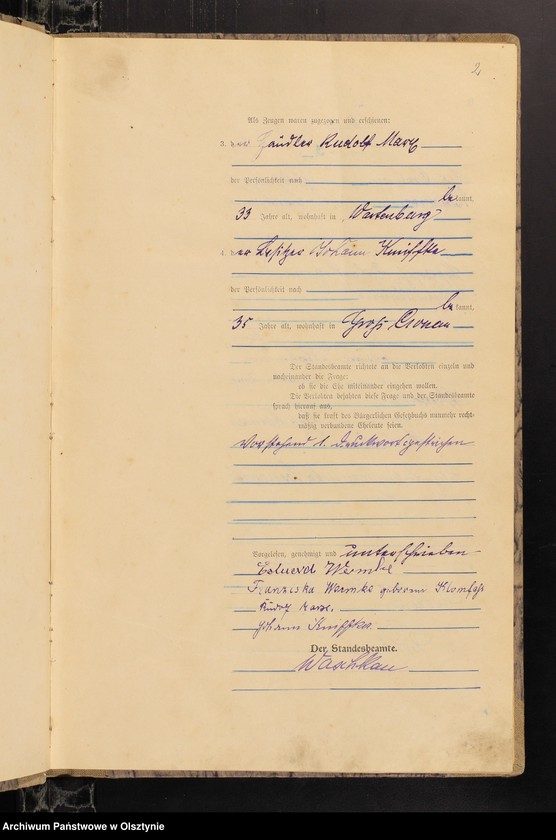 2
Als Zeugen waren zugezogen und erschienen:
3. der Händler Rudolf Marx
der Persönlichkeit nach
bekannt,
33 Jahre alt, wohnhaft in Wartenburg
4. der Besitzer Johann Kniffka
der Persönlichkeit nach
bekannt,
35 Jahre alt, wohnhaft in Groß Cronau
Der Standesbeamte richtete an die Verlobten einzeln und
nacheinander die Frage:
ob sie die Ehe miteinander eingehen wollen.
Die Verlobten bejahten diese Frage und der Standesbeamte
sprach hierauf aus,
daß sie kraft des Bürgerlichen Gesetzbuchs nunmehr recht-
mäßig verbundene Eheleute seien.
Vorstehend 1. Druckwort gestrichen
Vorgelesen, genehmigt und unterschrieben
Eduard Wermke
Franziska Wermke geborene
Rudolf Marx.
Johann Kniffka.
Der Standesbeamte.
Waschkau
Archiwum Państwowe w Olsztynie